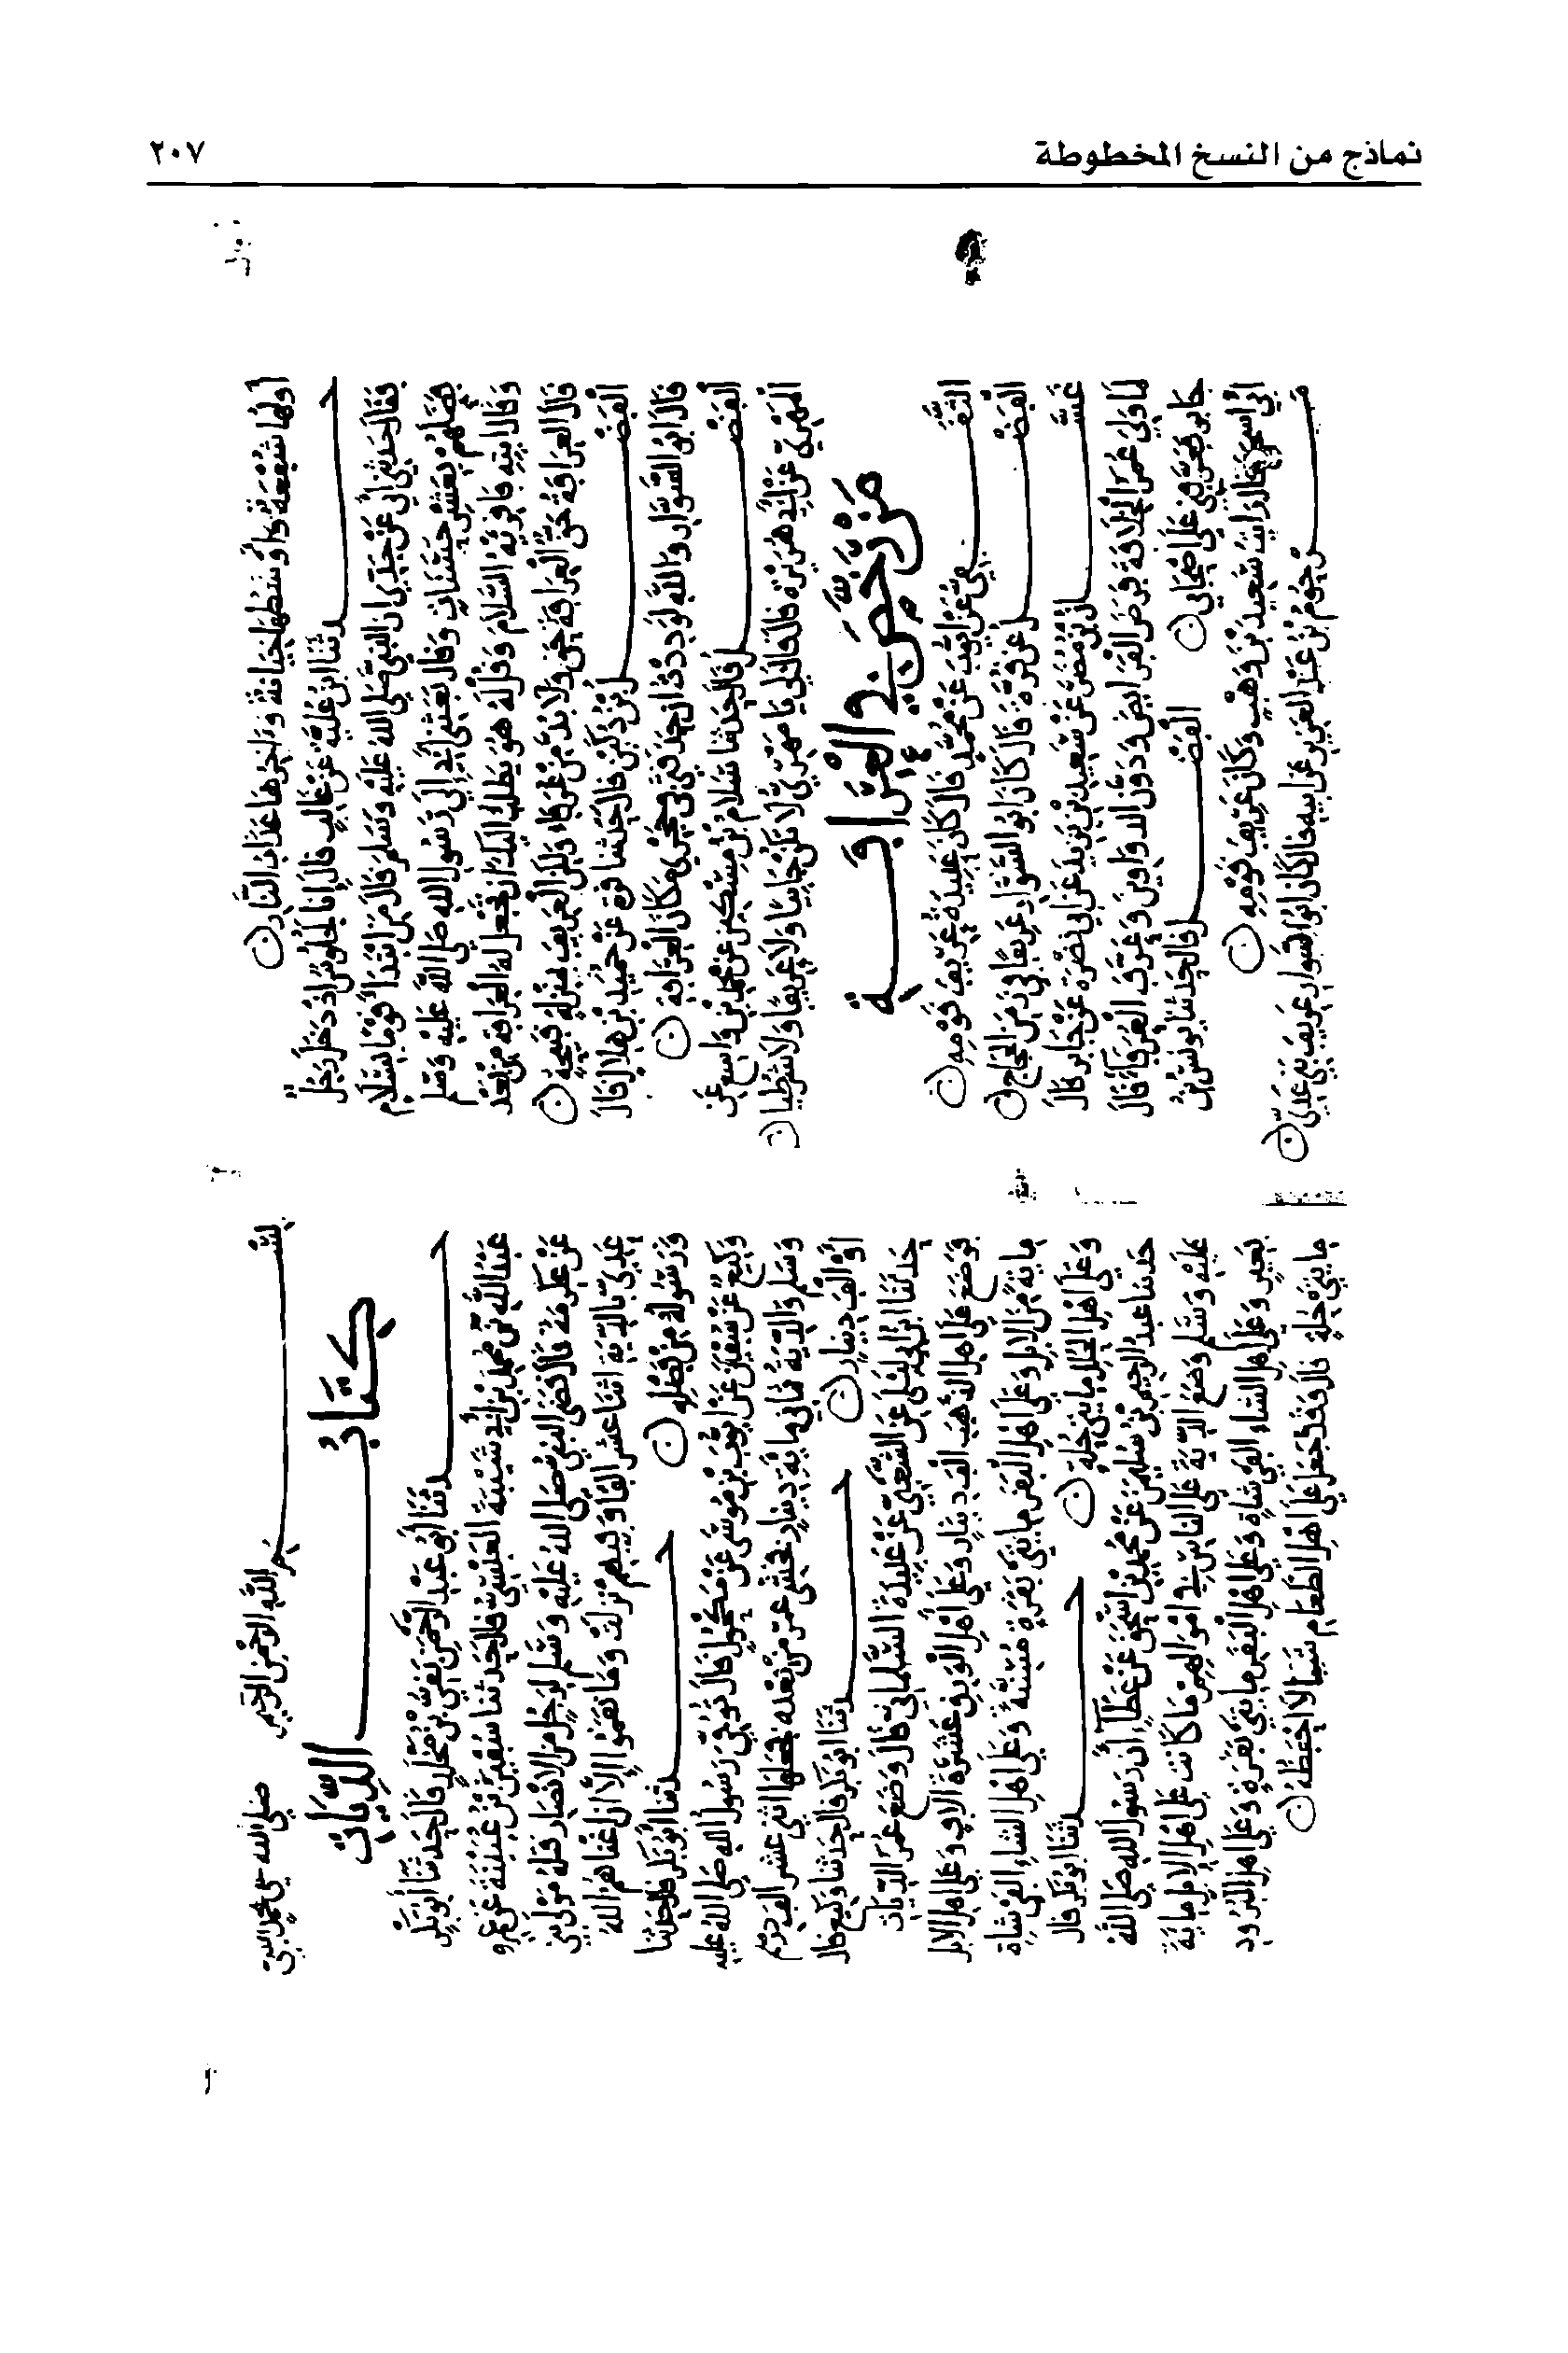 نماذج من النسخ المخطوطة
٢٠٧
أولها شفعة وأوسطها خيانة وآخرها عذاب النار
حدثنا ابن علية عن غالب قال إنا لجلوس إذ دخل رجل
فقال حدثني أبي عن جدي أن النبي صلى الله عليه وسلم قال من ابتدأ قوما بسلام
فضلهم بعشر حسنات وقال بعثني أبي إلى رسول الله صلى الله عليه وسلم
وقال ايته فأقرئه السلام وقل له هو يطلب إليك أن تجعل له العرافة من بعده
قال العرافة حق العرافة حق ولا بد من عرفاء ولكن العريف بمنزلة قبيحة
الفضل بن دكين قال حدثنا قرة عن حميد بن هلال قال
قال أبو السوار والله لوددت أن حدقتي في حجري مكان العرافة
الفضل قال حدثنا سلام بن مسكين عن محمد بن واسع عن
المهري عن أبي هريرة قال قال لي يا مهري لا تكن جابيا ولا عريفا ولا شرطيا
من رخص في العرافة
الثقفي عن أيوب عن محمد قال كان عبيدة عريف قومه
الفضل عن قرة قال كان أبو السوار عريفا في زمن الحجاج
غسان بن مضر عن سعيد بن يزيد عن أبي نضرة عن جابر قال
لما ولي عمر الخلافة فرض الفرائض ودون الدواوين وعرف العرفاء قال
جابر فعرفني على أصحابي
الفضل قال حدثنا يونس بن
أبي إسحق قال رأيت سعيد بن وهب وكان عريف قومه
مرحوم بن عبد العزيز عن أبيه قال كان أبو السوار عريف بني عدي
بسم الله الرحمن الرحيم صلى الله على محمد النبي
كتاب الديات
حدثنا أبو عبد الرحمن بقي بن مخلد قال حدثنا أبو بكر
عبد الله بن محمد بن أبي شيبة العبسي قال حدثنا سفيان بن عيينة عن عمرو
عن عكرمة قال قضى النبي صلى الله عليه وسلم لرجل من الأنصار قتله مولى بني
عدي بالدية اثنا عشر ألفا وفيهم نزلت وما نقموا إلا أن أغناهم الله
ورسوله من فضله
حدثنا أبو بكر قال حدثنا
وكيع عن سفيان عن أيوب بن موسى عن مكحول قال توفي رسول الله صلى الله عليه
وسلم والدية ثماني مائة دينار فخشي عمر من بعده فجعلها اثني عشر ألف درهم
أو ألف دينار
حدثنا أبو بكر قال حدثنا وكيع قال
حدثنا ابن أبي ليلى عن الشعبي عن عبيدة السلماني قال وضع عمر الديات
فوضع على أهل الذهب ألف دينار وعلى أهل الورق عشرة آلاف وعلى أهل الابل
مايه من الابل وعلى أهل البقر مايتي بقرة مسنة وعلى أهل الشاء ألفي شاة
وعلى أهل الحلل مايتي حلة
حدثنا أبو بكر قال
حدثنا عبد الرحيم بن سليمن عن محمد بن إسحق عن عطاء أن رسول الله صلى الله
عليه وسلم وضع الدية على الناس في أموالهم ما كانت على أهل الابل ماية
بعير وعلى أهل الشاء ألفي شاة وعلى أهل البقر مايتي بقرة وعلى أهل البرود
مايتي حلة قال وقد جعل على أهل الطعام شيئا لا أحفظه